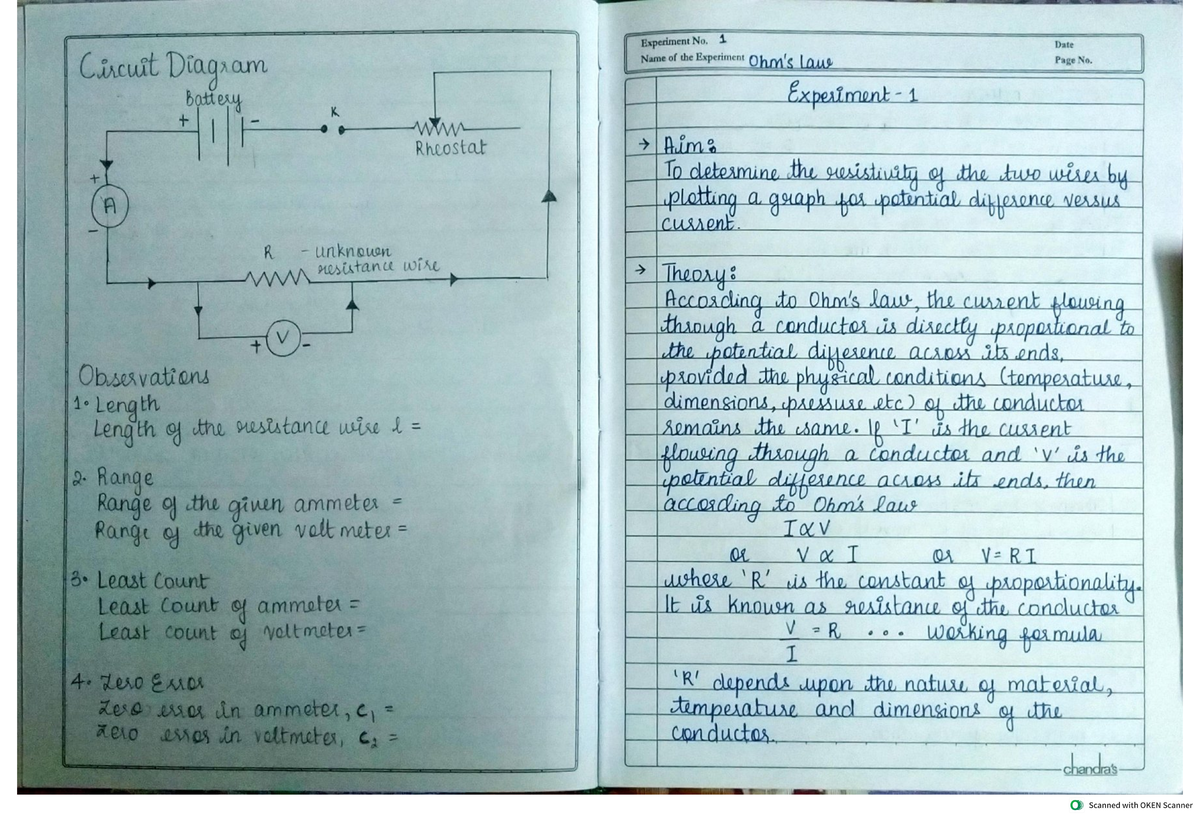 Circuit Diagram
Battery
+ -
K
Rheostat
+
A
-
R - unknown
resistance wire
+ V -
Observations
1. Length
Length of the resistance wire l =
2. Range
Range of the given ammeter =
Range of the given volt meter =
3. Least Count
Least Count of ammeter =
Least count of voltmeter =
4. Zero Error
Zero error in ammeter, c₁ =
Zero error in voltmeter, c₂ =
Experiment No. 1
Date
Name of the Experiment Ohm's law
Page No.
Experiment - 1
→ Aim:
To determine the resistivity of the two wires by
plotting a graph for potential difference versus
current.
→ Theory:
According to Ohm's law, the current flowing
through a conductor is directly proportional to
the potential difference across its ends,
provided the physical conditions (temperature,
dimensions, pressure etc) of the conductor
remains the same. If 'I' is the current
flowing through a conductor and 'V' is the
potential difference across its ends, then
according to Ohm's law
I ∝ V
or V ∝ I or V = RI
where 'R' is the constant of proportionality.
It is known as resistance of the conductor
V = R ... Working formula
I
'R' depends upon the nature of material,
temperature and dimensions of the
conductor.
chandra's
Scanned with OKEN Scanner